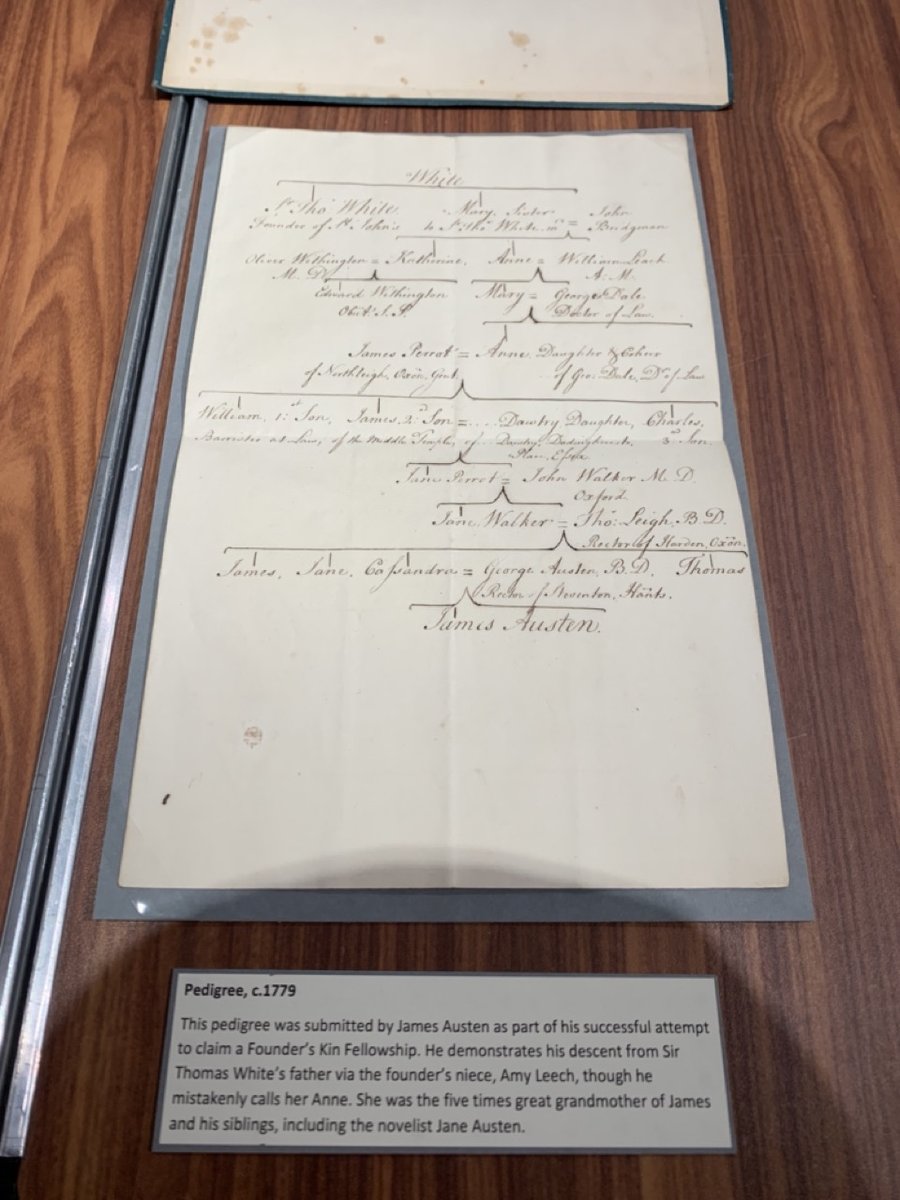 White
Sr. Tho: White. Mary, Sister John
Founder of St. John's to Sr. Tho: White. = Bridgman
Oliver Withington = Katherine, Anne = William Leach
M. D. A. M.
Edward Withington Mary = George Dale
Obiit. S. P. Doctor of Law.
James Perrot = Anne, Daughter & Coheir
of Northleigh, Oxōn, Gent. of Geo: Dale, Dr. of Law
William, 1:st Son, James, 2:d Son = .... Dawtry Daughter, Charles,
Barrister at Law, of the Middle Temple, of ... Dawtry, 3d Son.
Place, Essex.
Jane Perrot = John Walker M. D.
Oxford.
Jane Walker = Tho: Leigh, B. D.
Rector of Harden, Oxōn.
James, Jane, Cassandra = George Austen, B. D. Thomas
Rector of Steventon, Hants.
James Austen.
Pedigree, c.1779
This pedigree was submitted by James Austen as part of his successful attempt
to claim a Founder's Kin Fellowship. He demonstrates his descent from Sir
Thomas White's father via the founder's niece, Amy Leech, though he
mistakenly calls her Anne. She was the five times great grandmother of James
and his siblings, including the novelist Jane Austen.